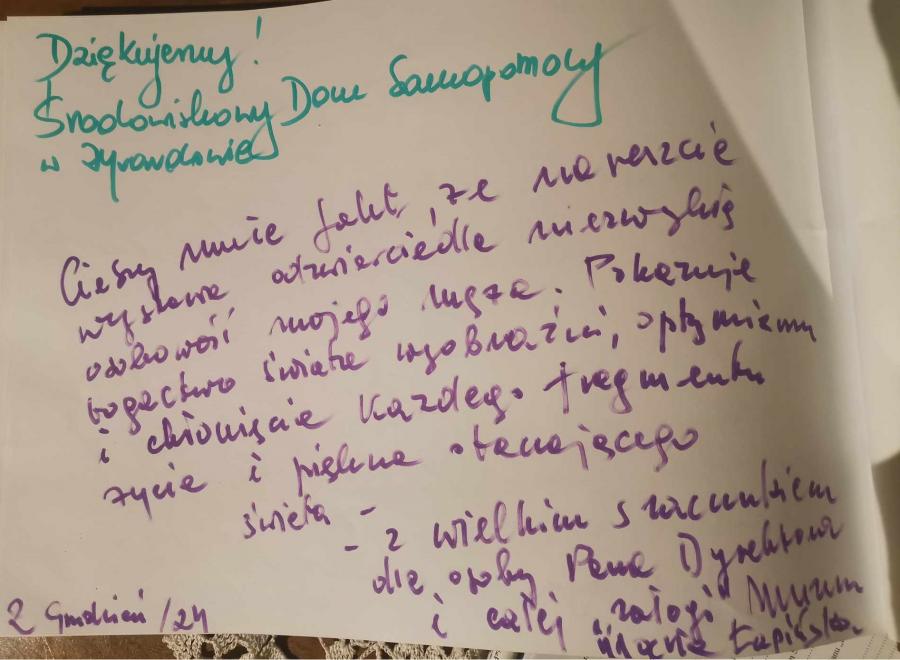 Dziękujemy!
Środowiskowy Dom Samopomocy
w Żyrardowie
Cieszy mnie fakt, że nareszcie
wystawa odzwierciedla niezwykłą
osobowość mojego męża. Pokazuje
bogactwo świata wyobraźni, optymizmu
i chłonięcie każdego fragmentu
życia i piękna otaczającego
świata -
- z wielkim szacunkiem
dla osoby Pana Dyrektora
i całej załogi Muzeum
Maria Łapińska
2 Grudzień /24